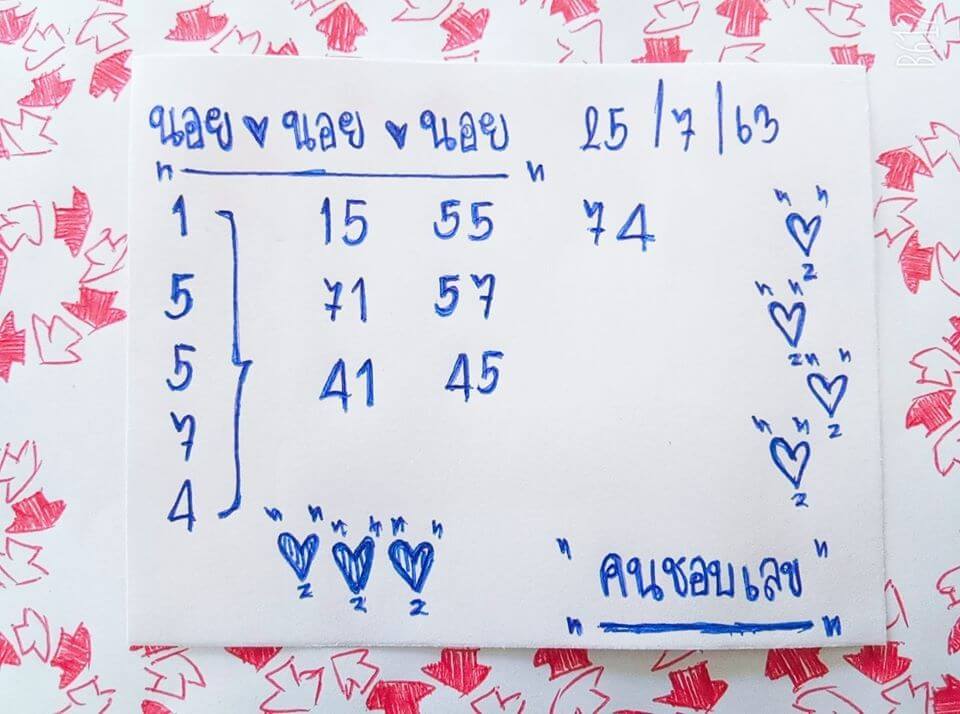 นอย ♥ นอย ♥ นอย 25/7/63
1 15 55 74
5 71 57
5 41 45
7
4
"คนชอบเลข"
B612